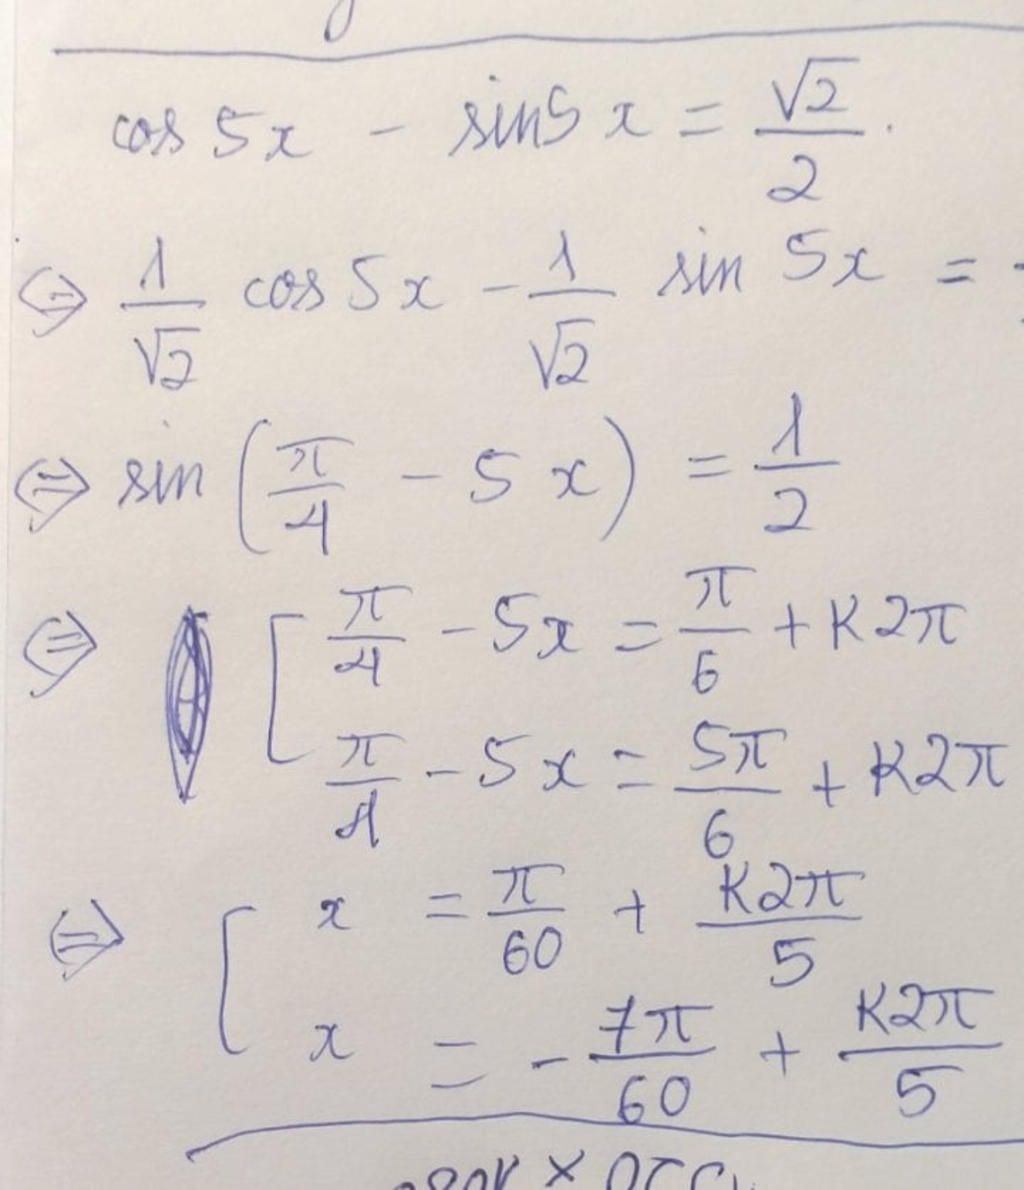 cos 5x - sin5x = √2/2.
⇔ 1/√2 cos 5x - 1/√2 sin 5x =
⇔ sin (π/4 - 5x) = 1/2
⇔ [ π/4 - 5x = π/6 + K2π
π/4 - 5x = 5π/6 + K2π
⇔ [ x = π/60 + K2π/5
x = - 7π/60 + K2π/5